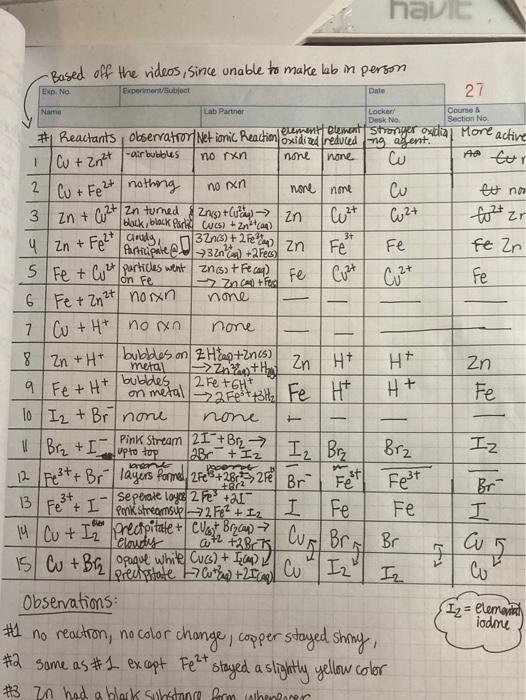 havit
Based off the videos, since unable to make lab in person
Exp. No. Experiment/Subject Date 27
Name Lab Partner Locker/Desk No. Course & Section No.
# Reactants observation Net ionic Reaction element oxidized element reduced Stronger oxidizing agent. More active
1 Cu + Zn2+ -air bubbles no rxn none none Cu
2 Cu + Fe2+ nothing no rxn none none Cu
3 Zn + Cu2+ Zn turned black, black Zn(s) + Cu2+(aq) → Cu(s) + Zn2+(aq) Zn Cu2+ Cu2+
4 Zn + Fe3+ cloudy, Participate @ 3Zn(s) + 2Fe3+(aq) → 3Zn2+(aq) + 2Fe(s) Zn Fe3+ Fe Zn
5 Fe + Cu2+ particles went on Fe Zn(s) + Fe(aq) → Zn(aq) + Fe(s) Fe Cu2+ Cu2+ Fe
6 Fe + Zn2+ no rxn none — — —
7 Cu + H+ no rxn none — —
8 Zn + H+ bubbles on metal 2H+(aq) + Zn(s) → Zn2+(aq) + H2(g) Zn H+ H+ Zn
9 Fe + H+ bubbles on metal 2Fe + 6H+ → 2Fe3+ + 3H2 Fe H+ H+ Fe
10 I2 + Br- none none — — —
11 Br2 + I- Pink Stream up to top 2I- + Br2 → 2Br- + I2 I2 Br2 Br2 I2
12 Fe3+ + Br- layers formed 2Fe3+ + 2Br- → 2Fe + Br2 Br- Fe3+ Fe3+ Br-
13 Fe3+ + I- Seperate layers Pink streams up 2Fe3 + 2I- → 2Fe2 + I2 I Fe Fe I
14 Cu + I2 precipitate + cloudy Cu(s) + Br2(aq) → Cu+2 + 2Br- Cu Br Br Cu
15 Cu + Br2 opaque white precipitate Cu(s) + I2(aq) → Cu2+(aq) + 2I(aq) Cu I2 I2 Cu
Observations:
I2 = elemental iodine
#1 no reaction, no color change, copper stayed shiny,
#2 same as #1 except Fe2+ stayed a slightly yellow color
#3 Zn had a black substance form whenever